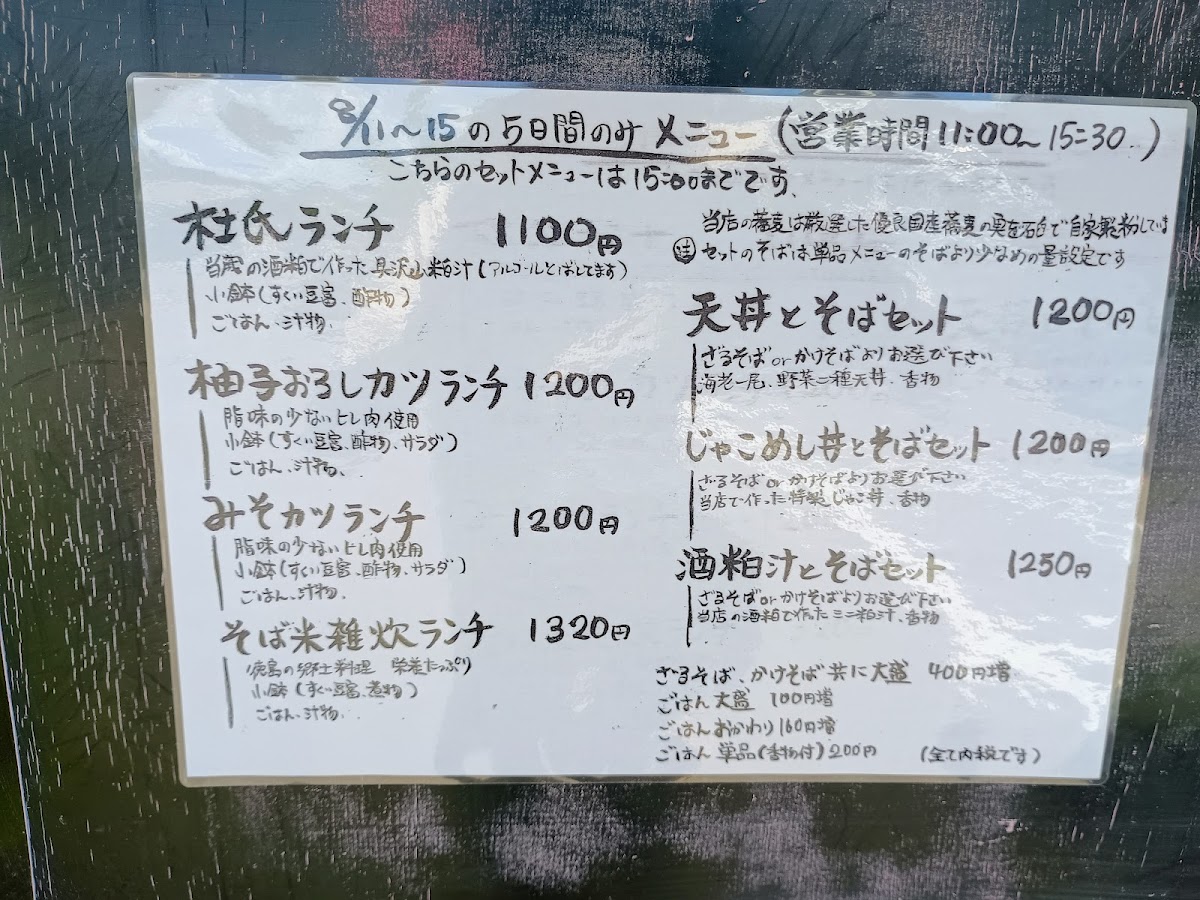 8/11〜15の5日間のみ メニュー (営業時間11:00〜15:30.)
こちらのセットメニューは15:00までです、
杜氏ランチ 1100円
当蔵の酒粕で作った具沢山粕汁(アルコールとばしてます)
小鉢(すくい豆富、酢物)
ごはん、汁物、
柚子おろしカツランチ 1200円
脂味の少ないヒレ肉使用
小鉢(すくい豆富、酢物、サラダ)
ごはん、汁物、
みそカツランチ 1200円
脂味の少ないヒレ肉使用
小鉢(すくい豆富、酢物、サラダ)
ごはん、汁物.
そば米雑炊ランチ 1320円
徳島の郷土料理 栄養たっぷり
小鉢(すくい豆富、煮物)
ごはん、汁物.
当店の蕎麦は厳選した優良国産蕎麦の実を石臼で自家製粉していま
注 セットのそばは単品メニューのそばより少なめの量設定です
天丼とそばセット 1200円
ざるそばorかけそばよりお選び下さい
海老一尾、野菜二種天丼、香物
じゃこめし丼とそばセット 1200円
ざるそばorかけそばよりお選び下さい
当店で作った特製じゃこ丼、香物
酒粕汁とそばセット 1250円
ざるそばorかけそばよりお選び下さい
当店の酒粕で作ったミニ粕汁、香物
ざるそば、かけそば共に大盛 400円増
ごはん大盛 100円増
ごはんおかわり160円増
ごはん 単品(香物付)200円 (全て内税です)